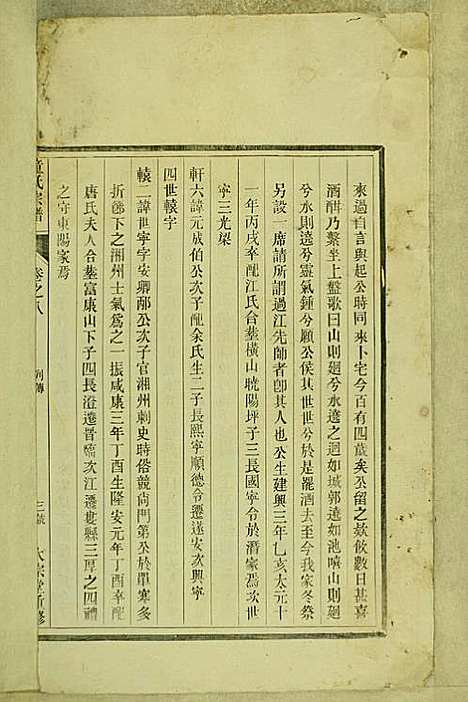 來過自言與起公時同來卜宅今百有四歲矣公留之欵飲數日甚喜
酒酣乃繫坐上盤歌曰山則廻兮水遶之廻如城郭遶如池噴山則廻
兮水則遶兮靈氣鍾兮願公侯其世世兮於是罷酒去至今我家冬祭
另設一席請所謂過江先師者卽其人也公生建興三年乙亥太元十
一年丙戌卒配江氏合塟橫山曉陽坪子三長國寧令於潛家焉次世
寧三光梁
軒六諱元成伯公次子配余氏生二子長熙寧順德令遷遂安次興寧
四世轅字
轅二諱世寧字安卿邴公次子官湘州刺史時俗競尙門第公於單寒多
折節下之湘州士氣爲之一振咸康三年丁酉生隆安元年丁酉卒配
唐氏夫人合塟富康山下子四長澄遷晉臨次江遷婁縣三厚之四禮
之守東陽家焉
氏宗譜 卷之八 列傳 三 大宗堂新修